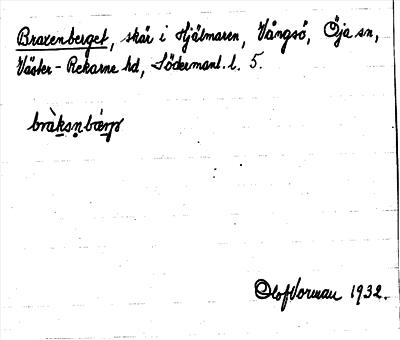 Braxenberget, skär i Hjälmaren, Vångsö, Öja sn,
Väster-Rekarne hd, Södermanl. l. 5.
Olof Vorman 1932.